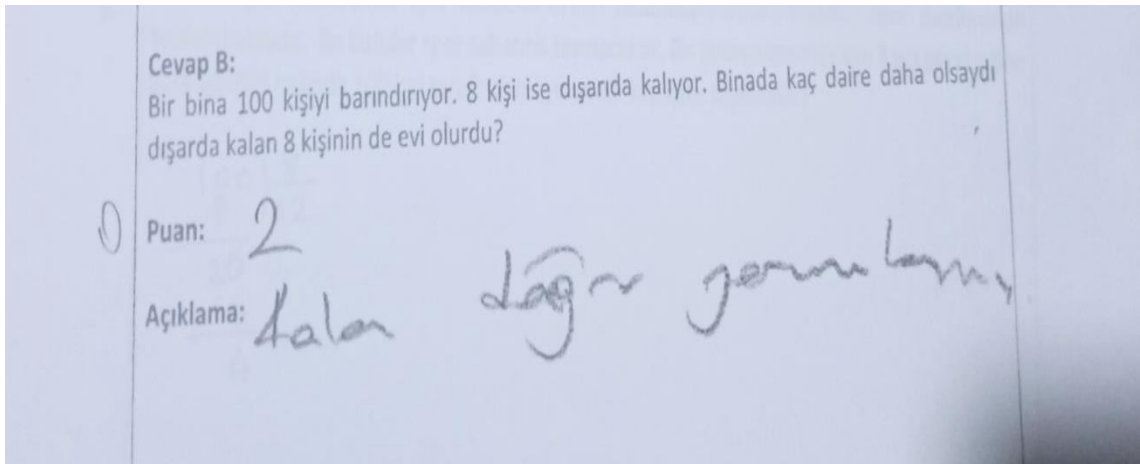 Cevap B:
Bir bina 100 kişiyi barındırıyor. 8 kişi ise dışarıda kalıyor. Binada kaç daire daha olsaydı
dışarda kalan 8 kişinin de evi olurdu?
Puan: 2
Açıklama: Kalan doğru yorumlanmış